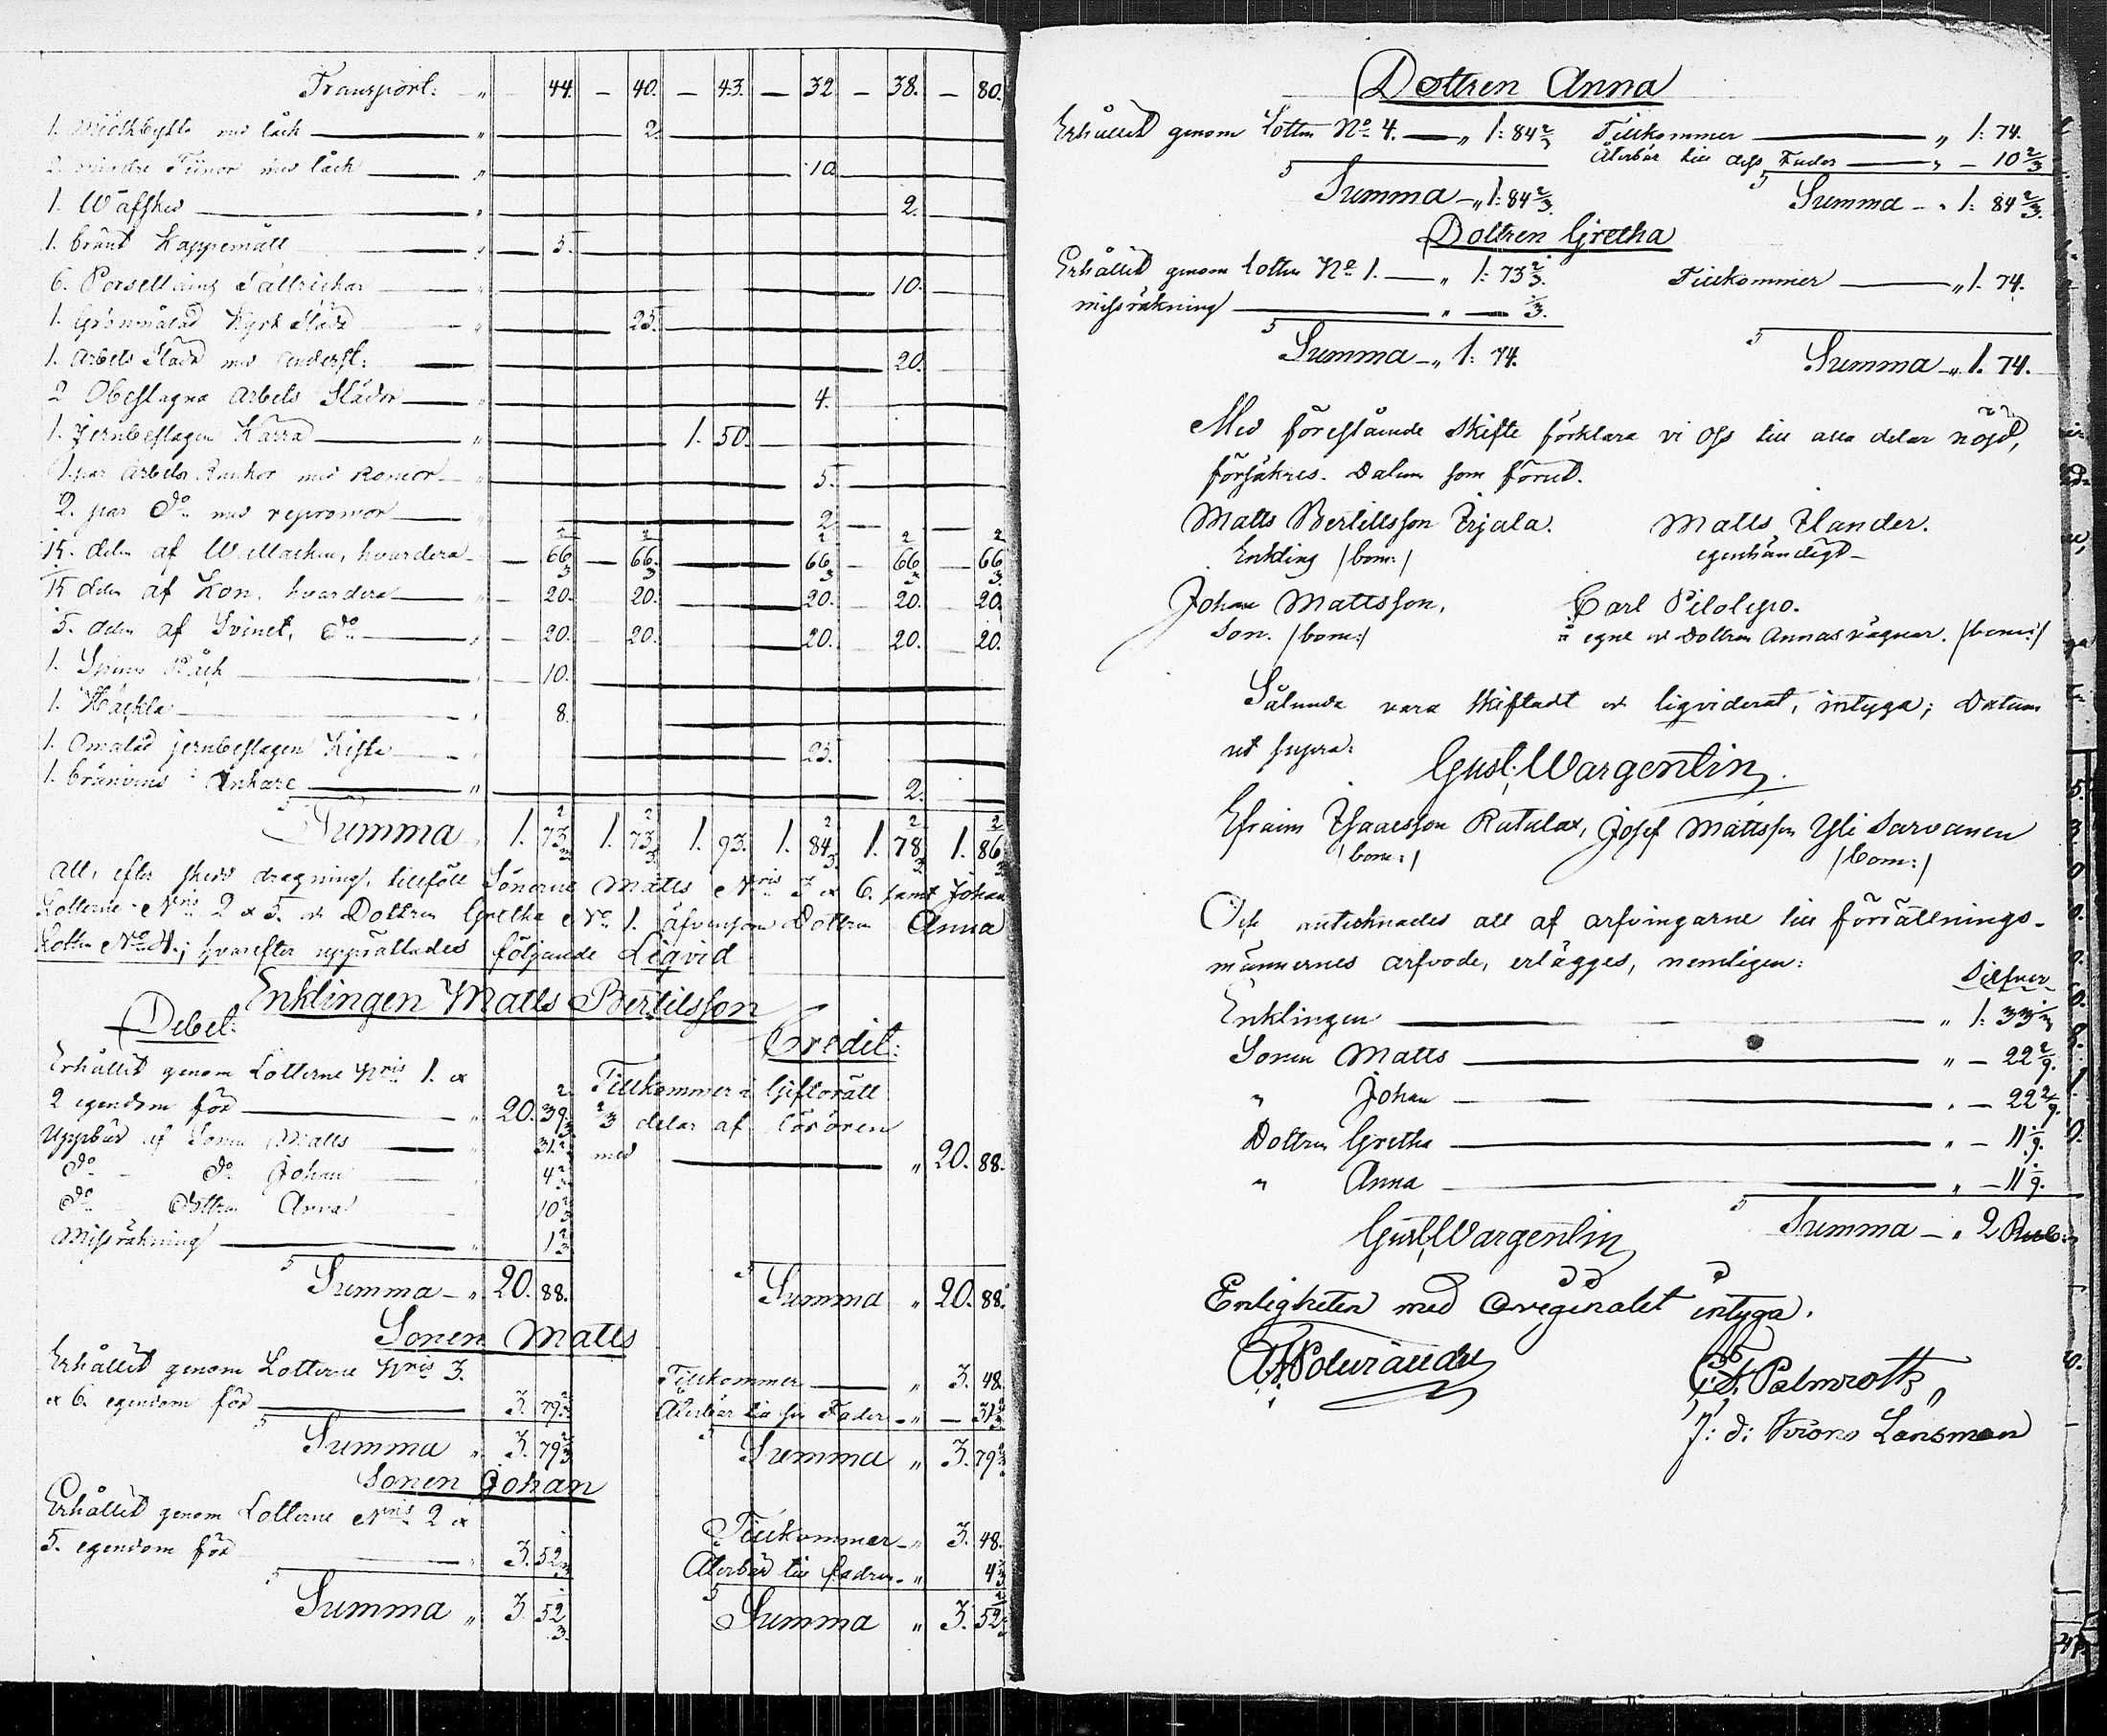 Transport: " 44. — 40. — 43. — 32 — 38. — 80.
1. Miölkbytta med låck " 2.
2. mindre Tiinor med låck " 10
1. Wäfsked " 2.
1. bränt Kappemått " 5.
6. Porsellains Tallrickar " 10.
1. Grönmålad Kyrk Släda " 25.
1. Arbets Släda med underst: 20.
2 Obeslagna Arbets Slädor " 4.
1. Jernbeslagen Kärra " 1. 50.
1. par Arbets Rankor med Romor " 5.
2. par do med repromor " 2
15. delen af Wallachen, hvardera — 66 2/3 — 66 2/3 — 66 2/3 — 66 2/3 — 66 2/3
15 delen af Kon, hvardera — 20. 20. 20. 20. 20.
5. delen af Svinet, do — 20. 20. 20. 20. 20.
1. Spinn Råck 10.
1. Häckla 8.
1. Omålad jernbeslagen Kista 25.
1. bränvins Ankare " 2.
Summa 1. 73 2/3 1. 73 2/3 1. 93. 1. 84 2/3 1. 78 2/3 1. 86 2/3
All, efter skedd dragning, tillföll Sönerne Matts Nris 3 & 6. samt Johan
Lotterne Nris 2 & 5. och Dottren Gretha No 1. äfvensom Dottren Anna
Lotten No 4.; hvarefter upprättades följande Liqvid
Enklingen Matts Bertilsson
Debet: Credit:
Erhållit genom Lotterne Nris 1. &
2 egendom för " 20. 39 2/3
Tillkommer i Giftorätt
2/3 delar af lösören
med " 20. 88.
Uppbär af Sonen Matts " 31 2/3
do do Johan 4 2/3
do Dottren Anna 10 2/3
Missräkning " 1 2/3
Summa — " 20. 88. Summa " 20. 88.
Sonen Matts
Erhållit genom Lotterne Nris 3. Tillkommer " 3. 48.
& 6. egendom för 3. 79 2/3 Återbär till sin Fader — " — 31 2/3
Summa " 3. 79 2/3 Summa " 3. 79 2/3
Sonen Johan
Erhållit genom Lotterne Nris 2 & Tillkommer — " 3. 48.
5. egendom för " 3. 52 Återbär till fadren — " 4 2/3
Summa " 3 52 Summa " 3. 52
Dottren Anna
Erhållit genom Lotten No 4. — " 1: 84 2/3 Tillkommer " 1: 74.
Återbär till dess Fader " — 10 2/3
Summa — " 1: 84 2/3. Summa — " 1: 84 2/3.
Dottren Gretha
Erhållit genom Lotten No 1. — " 1: 73 2/3. Tillkommer " 1. 74.
missräkning " — 1/3.
Summa — " 1: 74. Summa — " 1. 74.
Med föreslående Skifte förklara vi oss till alla delar nöjd,
försäkres. Datum som förut.
Matts Bertillsson Irjala. Matts Ilander.
Enkling /bom:/ egenhändigt —
Johan Mattsson, Carl Pilolepo.
Son. /bom:/ å egne och Dottren Annas vägnar. /bom:/
Sålunda vara Skiftadt och liqviderat, intyga; Datum
ut supra:
Gust: Wargentin.
Efraim Isaacsson Ratulax, Josef Mattsson Yli Sarvanen
/bom:/ /bom:/
Och antecknades att af arfvingarne till förrättnings-
männernes arfvode, erlägges, nemligen:
Silfver
Enklingen " 1: 33 1/3
Sonen Matts " — 22 2/9.
" Johan " — 22 2/9.
Dottren Gretha " — 11 1/9.
" Anna " — 11 1/9.
Gust: Wargentin Summa — " 2 Rub:
Enligheten med Orreginalet intyga.
Palmroth
T: d: Krono Länsman